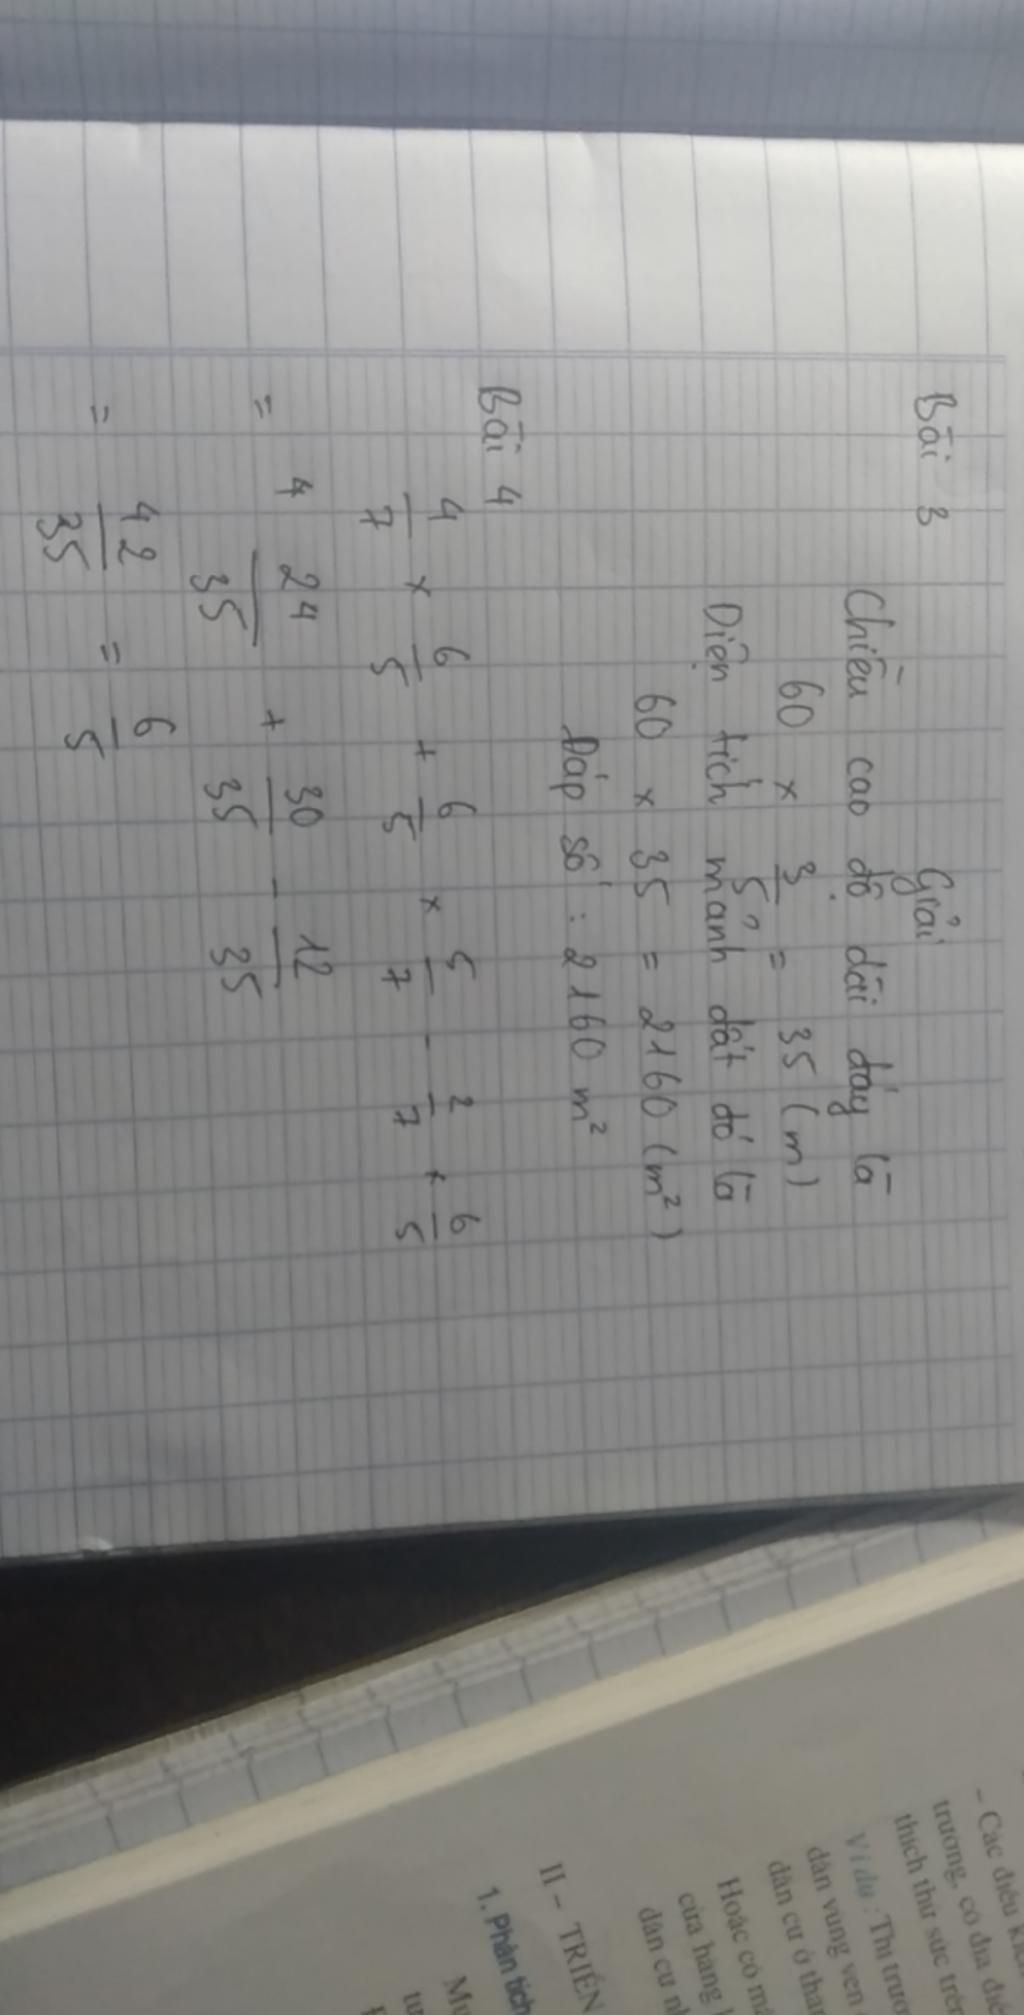 Bài 3
Giải
Chiều cao độ dài đáy là
60 × 3/5 = 35 (m)
Diện tích mảnh đất đó là
60 × 35 = 2160 (m²)
Đáp số : 2160 m²
Bài 4
4/7 × 6/5 + 6/5 × 5/7 - 2/7 × 6/5
= 4 24/35 + 30/35 - 12/35
= 42/35 = 6/5
- Các điều
trương, có địa
thích thú sức
Ví dụ : Thị
dân vùng ven
dân cư ở
Hoặc có
cửa hàng
dân cư
II - TRIỂN
1. Phân tích